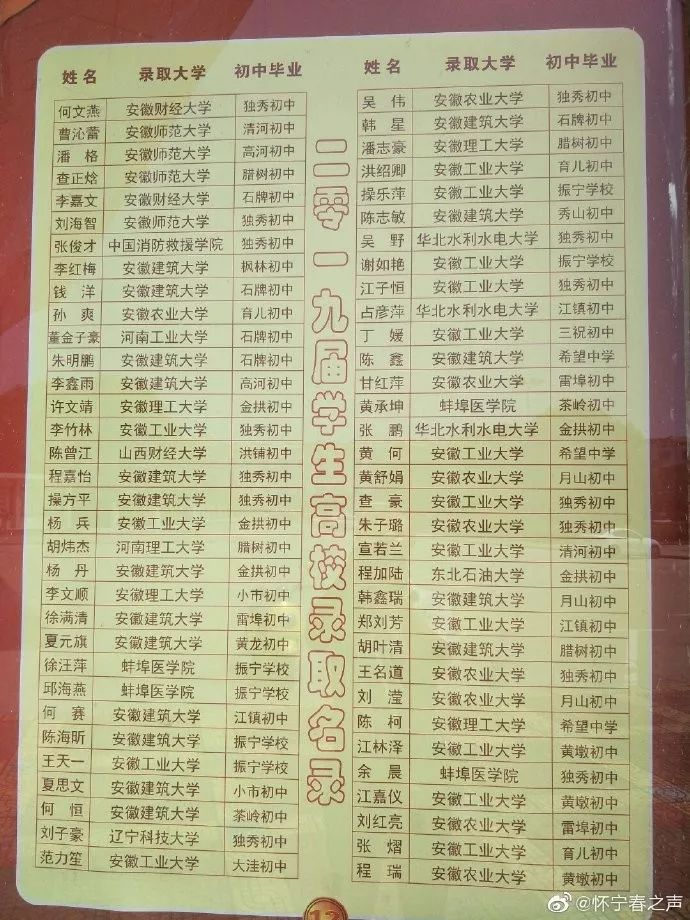 姓名 录取大学 初中毕业
何文燕 安徽财经大学 独秀初中
曹沁蕾 安徽师范大学 清河初中
潘格 安徽师范大学 高河初中
查正焓 安徽师范大学 腊树初中
李嘉文 安徽财经大学 石牌初中
刘海智 安徽师范大学 独秀初中
张俊才 中国消防救援学院 独秀初中
李红梅 安徽建筑大学 枫林初中
钱洋 安徽建筑大学 石牌初中
孙爽 安徽农业大学 育儿初中
董金子豪 河南工业大学 石牌初中
朱明鹏 安徽建筑大学 石牌初中
李鑫雨 安徽建筑大学 高河初中
许文靖 安徽理工大学 金拱初中
李竹林 安徽工业大学 独秀初中
陈曾江 山西财经大学 洪铺初中
程嘉怡 安徽建筑大学 独秀初中
操方平 安徽建筑大学 独秀初中
杨兵 安徽工业大学 金拱初中
胡炜杰 河南理工大学 腊树初中
杨丹 安徽建筑大学 金拱初中
李文顺 安徽理工大学 小市初中
徐满清 安徽建筑大学 雷埠初中
夏元旗 安徽建筑大学 黄龙初中
徐汪萍 蚌埠医学院 振宁学校
邱海燕 蚌埠医学院 振宁学校
何赛 安徽建筑大学 江镇初中
陈海昕 安徽建筑大学 振宁学校
王天一 安徽工业大学 振宁学校
夏思文 安徽建筑大学 小市初中
何恒 安徽建筑大学 茶岭初中
刘子豪 辽宁科技大学 独秀初中
范力笙 安徽工业大学 大洼初中
二零一九届学生高校录取名录
姓名 录取大学 初中毕业
吴伟 安徽农业大学 独秀初中
韩星 安徽建筑大学 石牌初中
潘志豪 安徽理工大学 腊树初中
洪绍卿 安徽工业大学 育儿初中
操乐萍 安徽工业大学 振宁学校
陈志敏 安徽建筑大学 秀山初中
吴野 华北水利水电大学 独秀初中
谢如艳 安徽工业大学 振宁学校
江子恒 安徽工业大学 独秀初中
占彦萍 华北水利水电大学 江镇初中
丁媛 安徽工业大学 三祝初中
陈鑫 安徽建筑大学 希望中学
甘红萍 安徽农业大学 雷埠初中
黄承坤 蚌埠医学院 茶岭初中
张鹏 华北水利水电大学 金拱初中
黄何 安徽工业大学 希望中学
黄舒娟 安徽农业大学 月山初中
查豪 安徽工业大学 独秀初中
朱子璐 安徽农业大学 独秀初中
宣若兰 安徽工业大学 清河初中
程加陆 东北石油大学 金拱初中
韩鑫瑞 安徽建筑大学 月山初中
郑刘芳 安徽工业大学 江镇初中
胡叶清 安徽建筑大学 腊树初中
王名道 安徽农业大学 独秀初中
刘滢 安徽农业大学 月山初中
陈柯 安徽理工大学 希望中学
江林泽 安徽工业大学 黄墩初中
余晨 蚌埠医学院 独秀初中
江嘉仪 安徽工业大学 黄墩初中
刘红亮 安徽农业大学 雷埠初中
张熠 安徽工业大学 育儿初中
程瑞 安徽农业大学 黄墩初中
@怀宁春之声